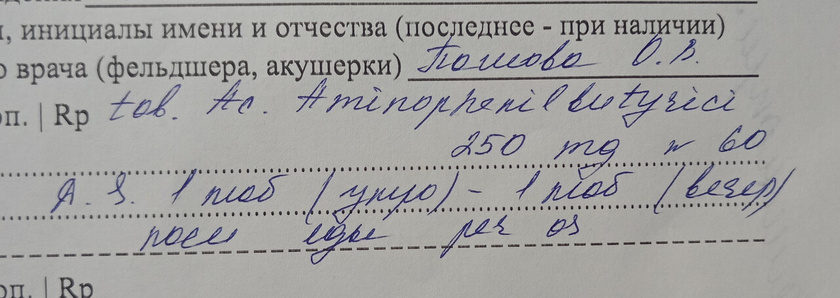 , инициалы имени и отчества (последнее - при наличии)
о врача (фельдшера, акушерки) О.В.
оп. | Rp tab. Ac. Aminophenilbutyrici
250 mg n 60
D. S. 1 таб (утро) - 1 таб (вечер)
после еды per os
оп. | Rp